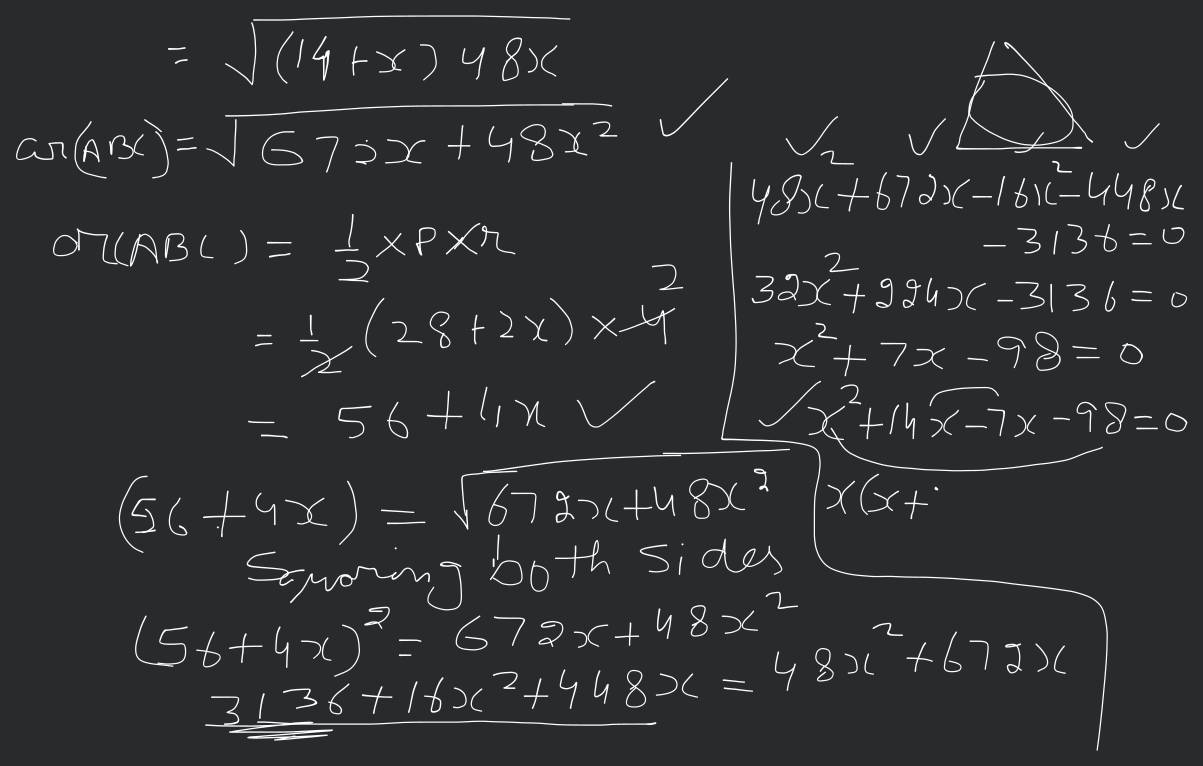 = √(14+x) 48x
ar(ABC) = √672x + 48x² ✓
ar(ABC) = 1/2 × P × r
= 1/2 (28+2x) × 4 2
= 56 + 4x ✓
(56 + 4x) = √672x + 48x²
Squaring both sides
(56+4x)² = 672x + 48x²
3136 + 16x² + 448x = 48x² + 672x
✓ ✓ ✓
48x² + 672x - 16x² - 448x
- 3136 = 0
32x² + 224x - 3136 = 0
x² + 7x - 98 = 0
✓ x² + 14x - 7x - 98 = 0
x(x+